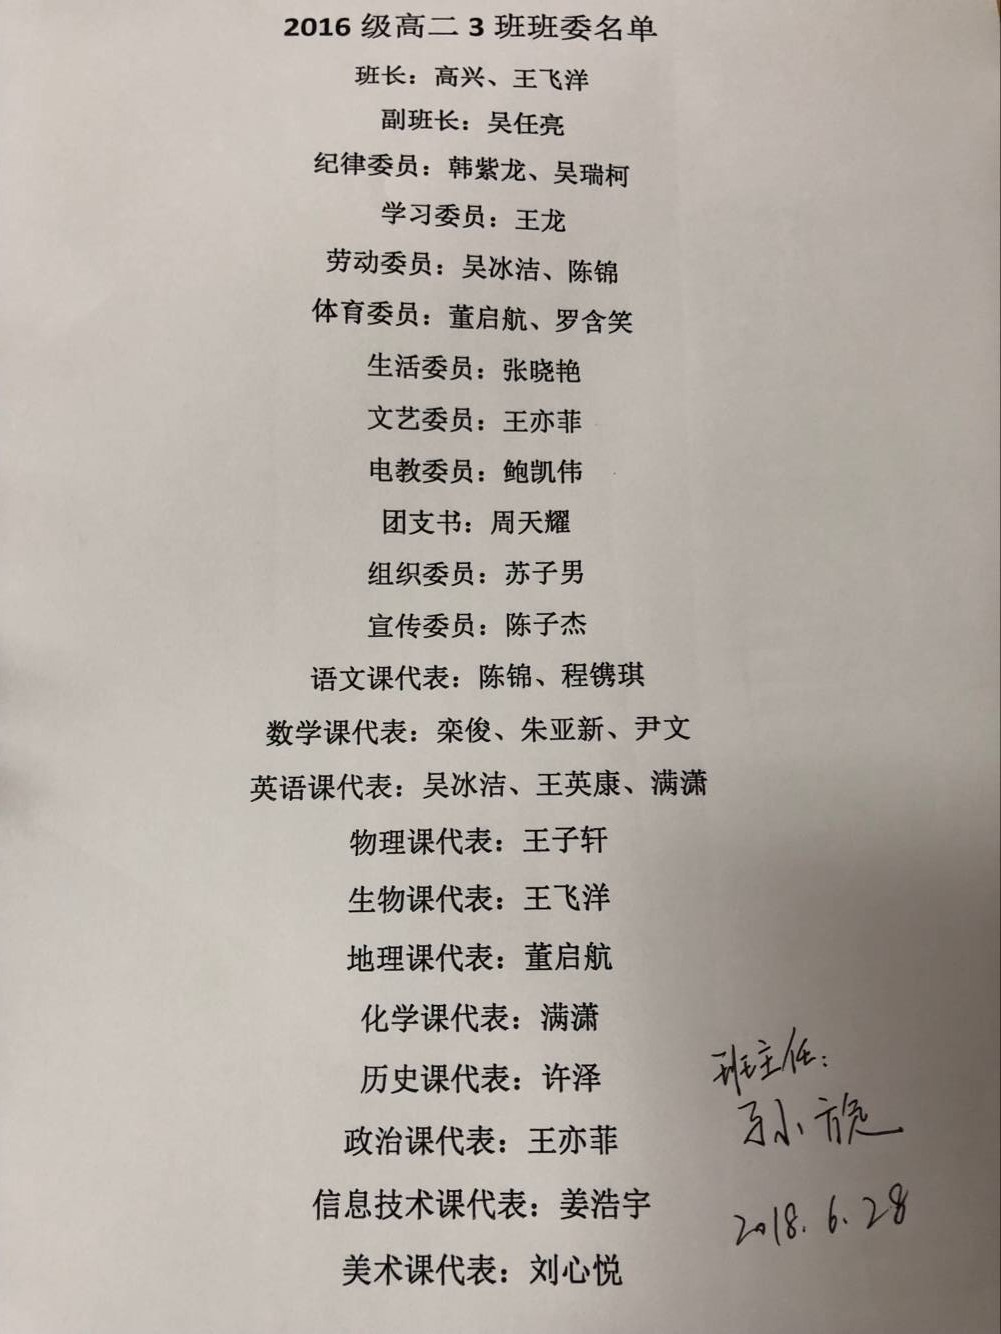 2016 级高二 3 班班委名单
班长：高兴、王飞洋
副班长：吴任亮
纪律委员：韩紫龙、吴瑞柯
学习委员：王龙
劳动委员：吴冰洁、陈锦
体育委员：董启航、罗含笑
生活委员：张晓艳
文艺委员：王亦菲
电教委员：鲍凯伟
团支书：周天耀
组织委员：苏子男
宣传委员：陈子杰
语文课代表：陈锦、程镌琪
数学课代表：栾俊、朱亚新、尹文
英语课代表：吴冰洁、王英康、满潇
物理课代表：王子轩
生物课代表：王飞洋
地理课代表：董启航
化学课代表：满潇
历史课代表：许泽
政治课代表：王亦菲
信息技术课代表：姜浩宇
美术课代表：刘心悦
班主任：
孙旋
2018.6.28